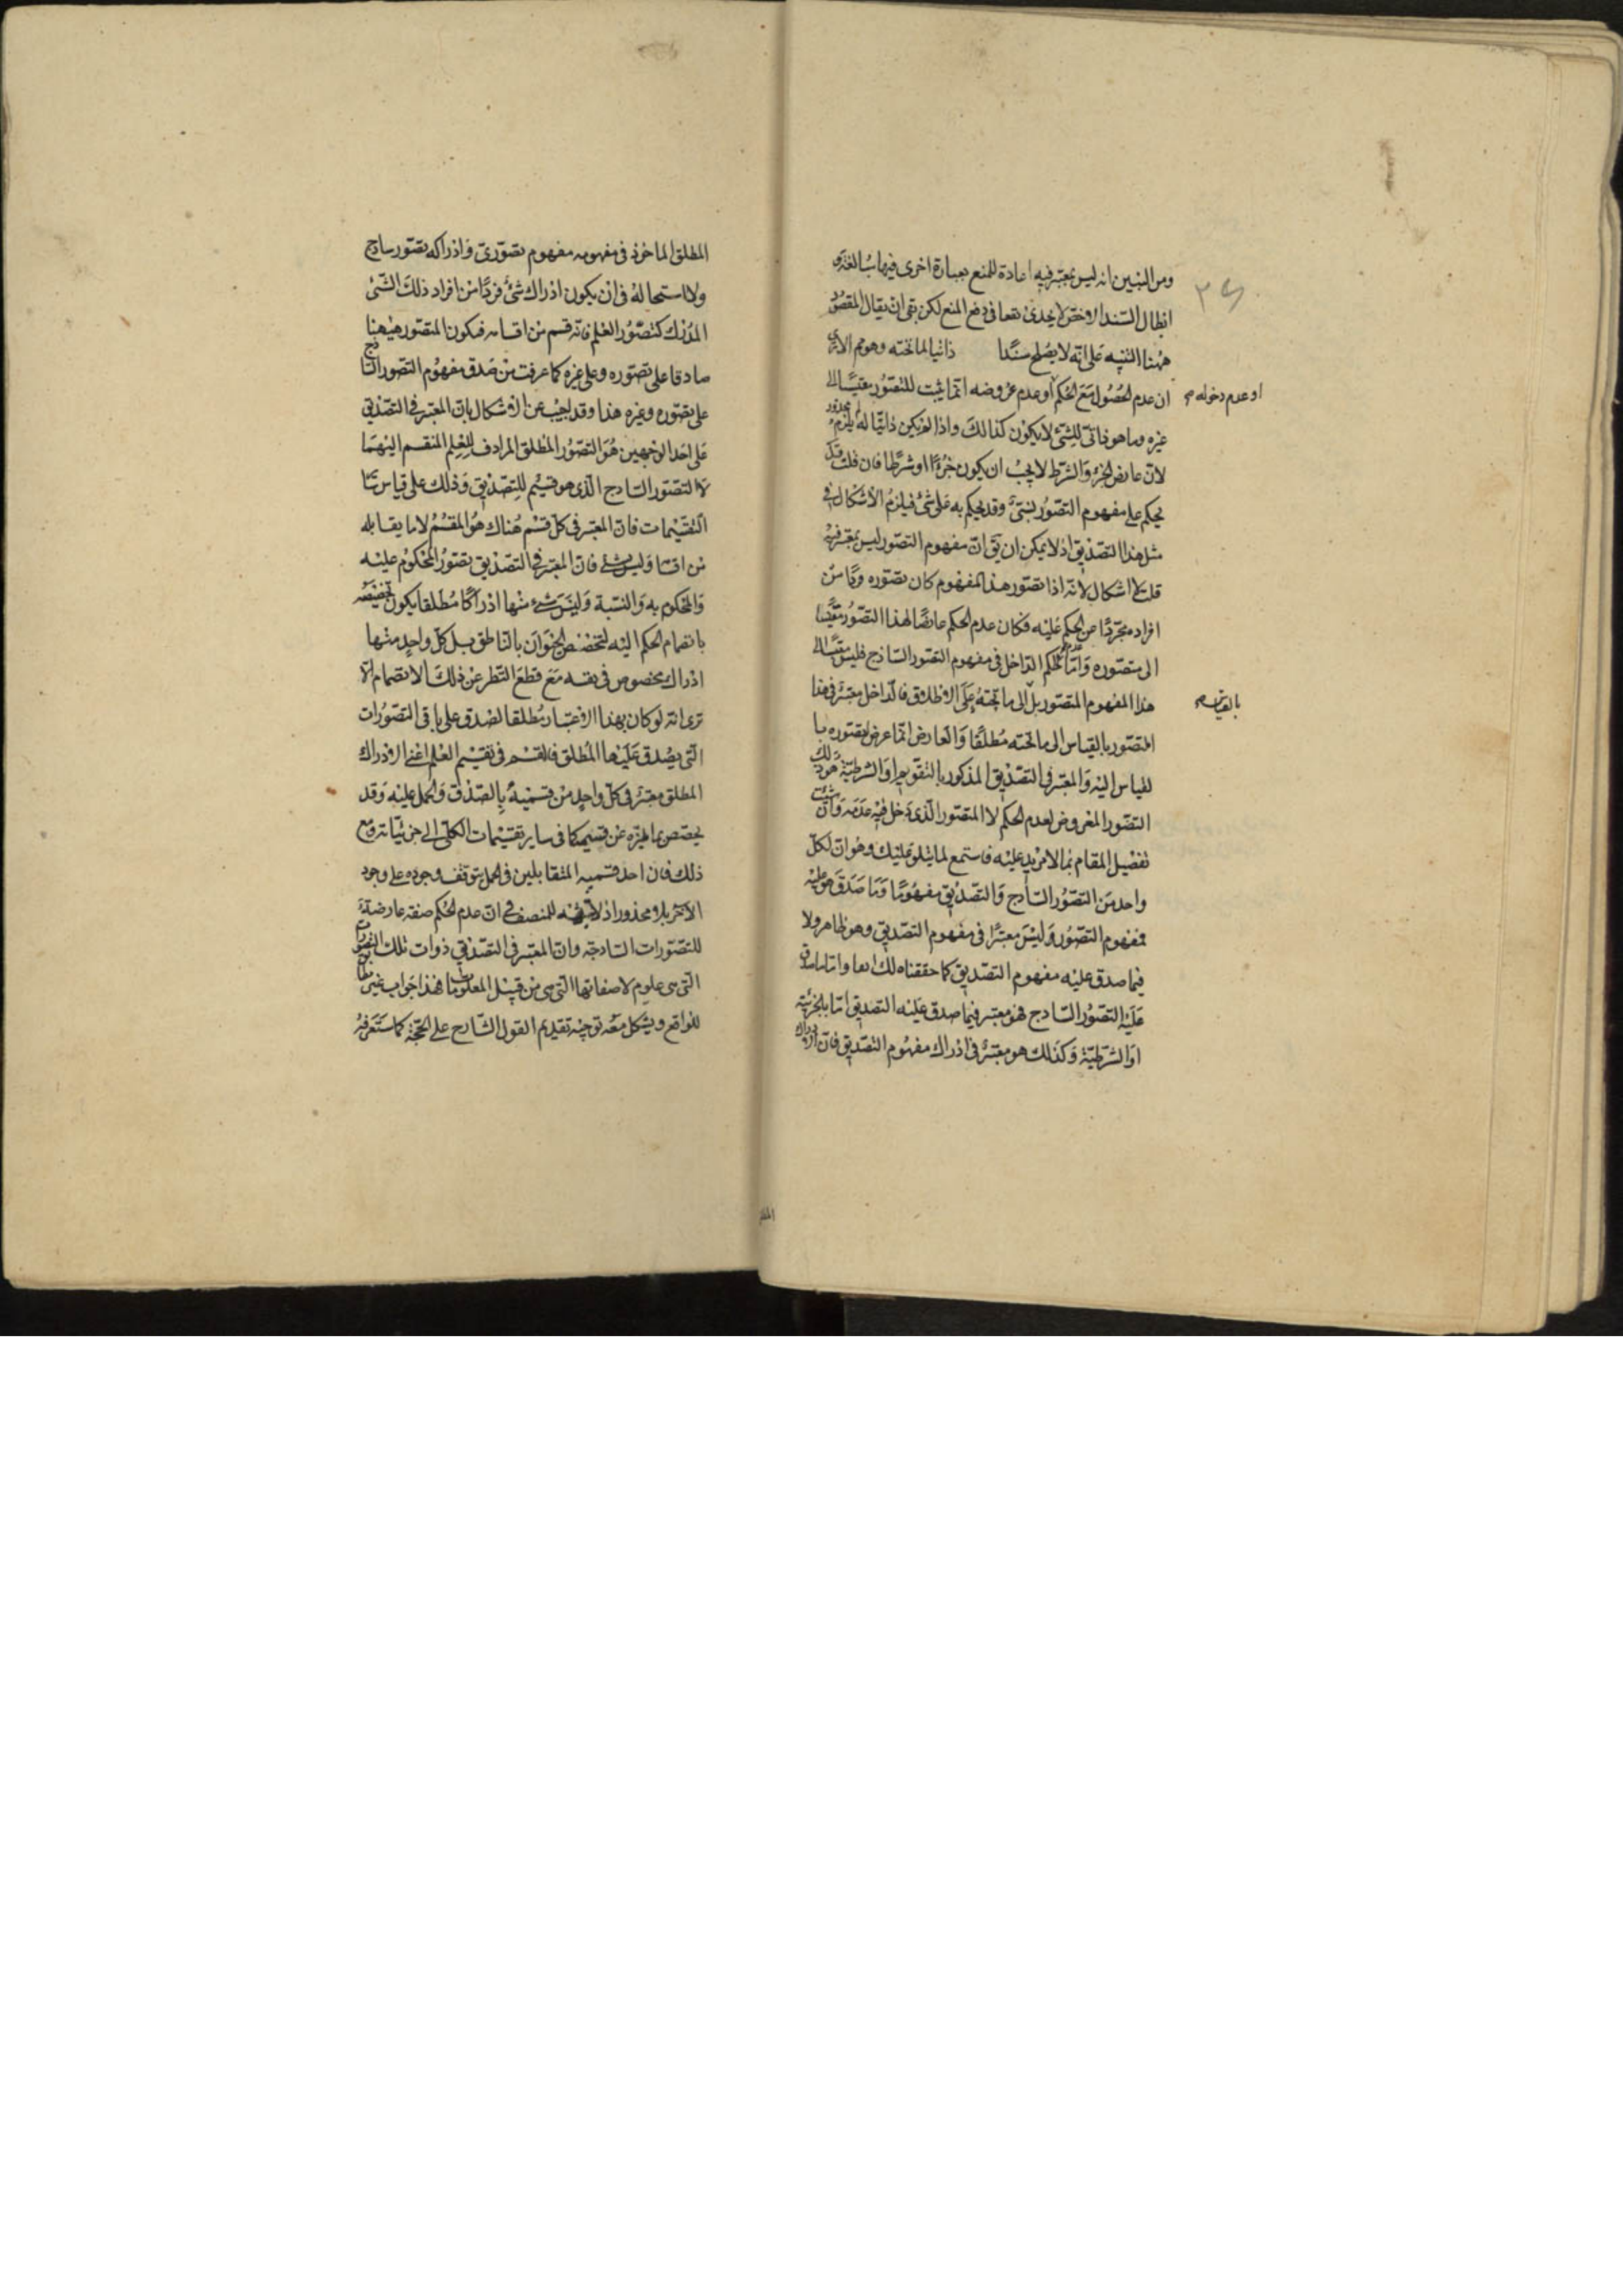 ومن البين انه ليس بمعتبر فيه اعادة للمنع بعبارة اخرى فيها
ابطال السند الاخص لا يجدى نفعا فى دفع المنع لكن بقى ان يقال المقصود
ههنا التنبيه على انه لا يصلح سندا ذاتيا لما تحته وهو
ان عدم الحصول مع الحكم او عدم عروضه انما يثبت للتصور مقيسا الى
او عدم دخوله صح
غيره وما هو ذاتى للشئ لا يكون كذالك واذا لم يكن ذاتيا له لم يلزم محذور
لان عارض الجزء والشرط لا يجب ان يكون جزءا او شرطا فان قلت قد
يحكم على مفهوم التصور بشئ وقد يحكم به على شئ فيلزم الاشكال فى
مثل هذا التصديق اذ لا يمكن ان يق ان مفهوم التصور ليس بمعتبر فيه
قلت لا اشكال لانه اذا تصور هذا المفهوم كان تصوره فردا من
افراده مجردا عن الحكم عليه فكان عدم الحكم عارضا لهذا التصور مقيسا
الى متصوره واما عدم الحكم الداخل فى مفهوم التصور الساذج فليس مقيسا الى
هذا المفهوم المتصور بل الى ما تحته على الاطلاق فالداخل معتبر فى هذا
بالقياس صح
المتصور بالقياس الى ما تحته مطلقا والعارض انما عرض لتصوره با
لقياس اليه والمعتبر فى التصديق المذكور بالتقويم او الشرطية هو ذلك
التصور المعروض لعدم الحكم لا المتصور الذى دخل فيه عدمه وان شئت
تفصيل المقام بما لا مزيد عليه فاستمع لما يتلو عليك وهو ان لكل
واحد من التصور الساذج والتصديق مفهوما وما صدق هو عليه
فمفهوم التصور وليس معتبرا فى مفهوم التصديق وهو ظاهر ولا
فيما صدق عليه مفهوم التصديق كما حققناه لك انفا واما ما صدق
عليه التصور الساذج فهو معتبر فيما صدق عليه التصديق اما بالجزئية
او الشرطية وكذلك هو معتبر فى ادراك مفهوم التصديق فان ادراك
المطلق الماخوذ فى مفهومه مفهوم تصورى وادراكه تصور ساذج
ولا استحالة فى ان يكون ادراك شئ فردا من افراد ذلك الشئ
المدرك كتصور العلم فانه قسم من اقسامه فيكون المتصور ههنا
صادقا على تصوره وعلى غيره كما عرفت من صدق مفهوم التصور الساذج
على تصوره وغيره هذا وقد يجيب عن الاشكال بان المعتبر فى التصديق
على احد الوجهين هو التصور المطلق المرادف للعلم المنقسم اليهما
لا التصور الساذج الذى هو قسيم للتصديق وذلك على قياس سائر
التقسيمات فان المعتبر فى كل قسم هناك هو المقسم لا ما يقابله
من اقسامه وليس بشئ فان المعتبر فى التصديق تصور المحكوم عليه
والمحكوم به والنسبة وليس شئ منها ادراكا مطلقا يكون تخصيصه
بانضمام الحكم اليه لتخصص الحيوان بالناطق بل كل واحد منها
ادراك مخصوص فى نفسه مع قطع النظر عن ذلك الانضمام الا
ترى انه لو كان بهذا الاعتبار مطلقا لصدق على باقى التصورات
التى يصدق عليها المطلق فالقسم فى تقسيم العلم اعنى الادراك
المطلق معتبر فى كل واحد من قسميه بالصدق والحمل عليه وقد
يخصص بما يميزه عن قسيمه كما فى ساير تقسيمات الكلى الى جزئياته ومع
ذلك فان احد قسميه المتقابلين فى الحمل يتوقف وجوده على وجود
الاخر بلا محذور اذ لا شبهة للمنصف فى ان عدم الحكم صفة عارضة
للتصورات الساذجة وان المعتبر فى التصديق ذوات تلك التصورات
التى هى علوم لا صفاتها التى هى من قبيل المعلومات هذا جواب غير مطابق
للواقع ويشكل معه توجيه تقديم القول الشارح على الحجة كما ستعرفه